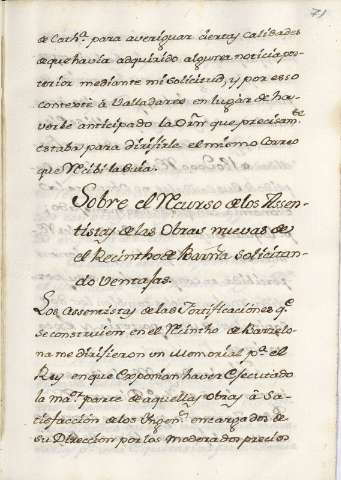 71
de Cath.ª para averiguar ciertas calidades
de que havia adquirido alguna noticia pos-
terior mediante mi solicitud, y por eso
contexté à Valladares en lugar de ha-
verle anticipado la Orñ que precisam.te
estaba para dirijirle el mismo Correo
que recibi la suia.
Sobre el Recurso de los Assen-
tistas de las Obras nuevas de
el Recintho de Barña solicitan-
do ventajas.
Los Assentistas de las Fortificaciones q.e
se construien en el Recintho de Barcelo-
na me dirijieron un Memorial p.ª el
Rey en que Exponian haver Executado
la ma.or parte de aquellas Obras à Sa-
tisfacción de los Ingen.s encargados de
su Direccion por los moderados precios